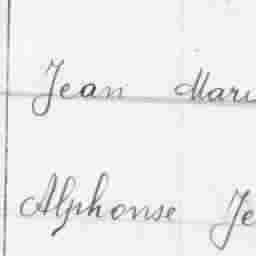 Jean Mari
Alphonse Je